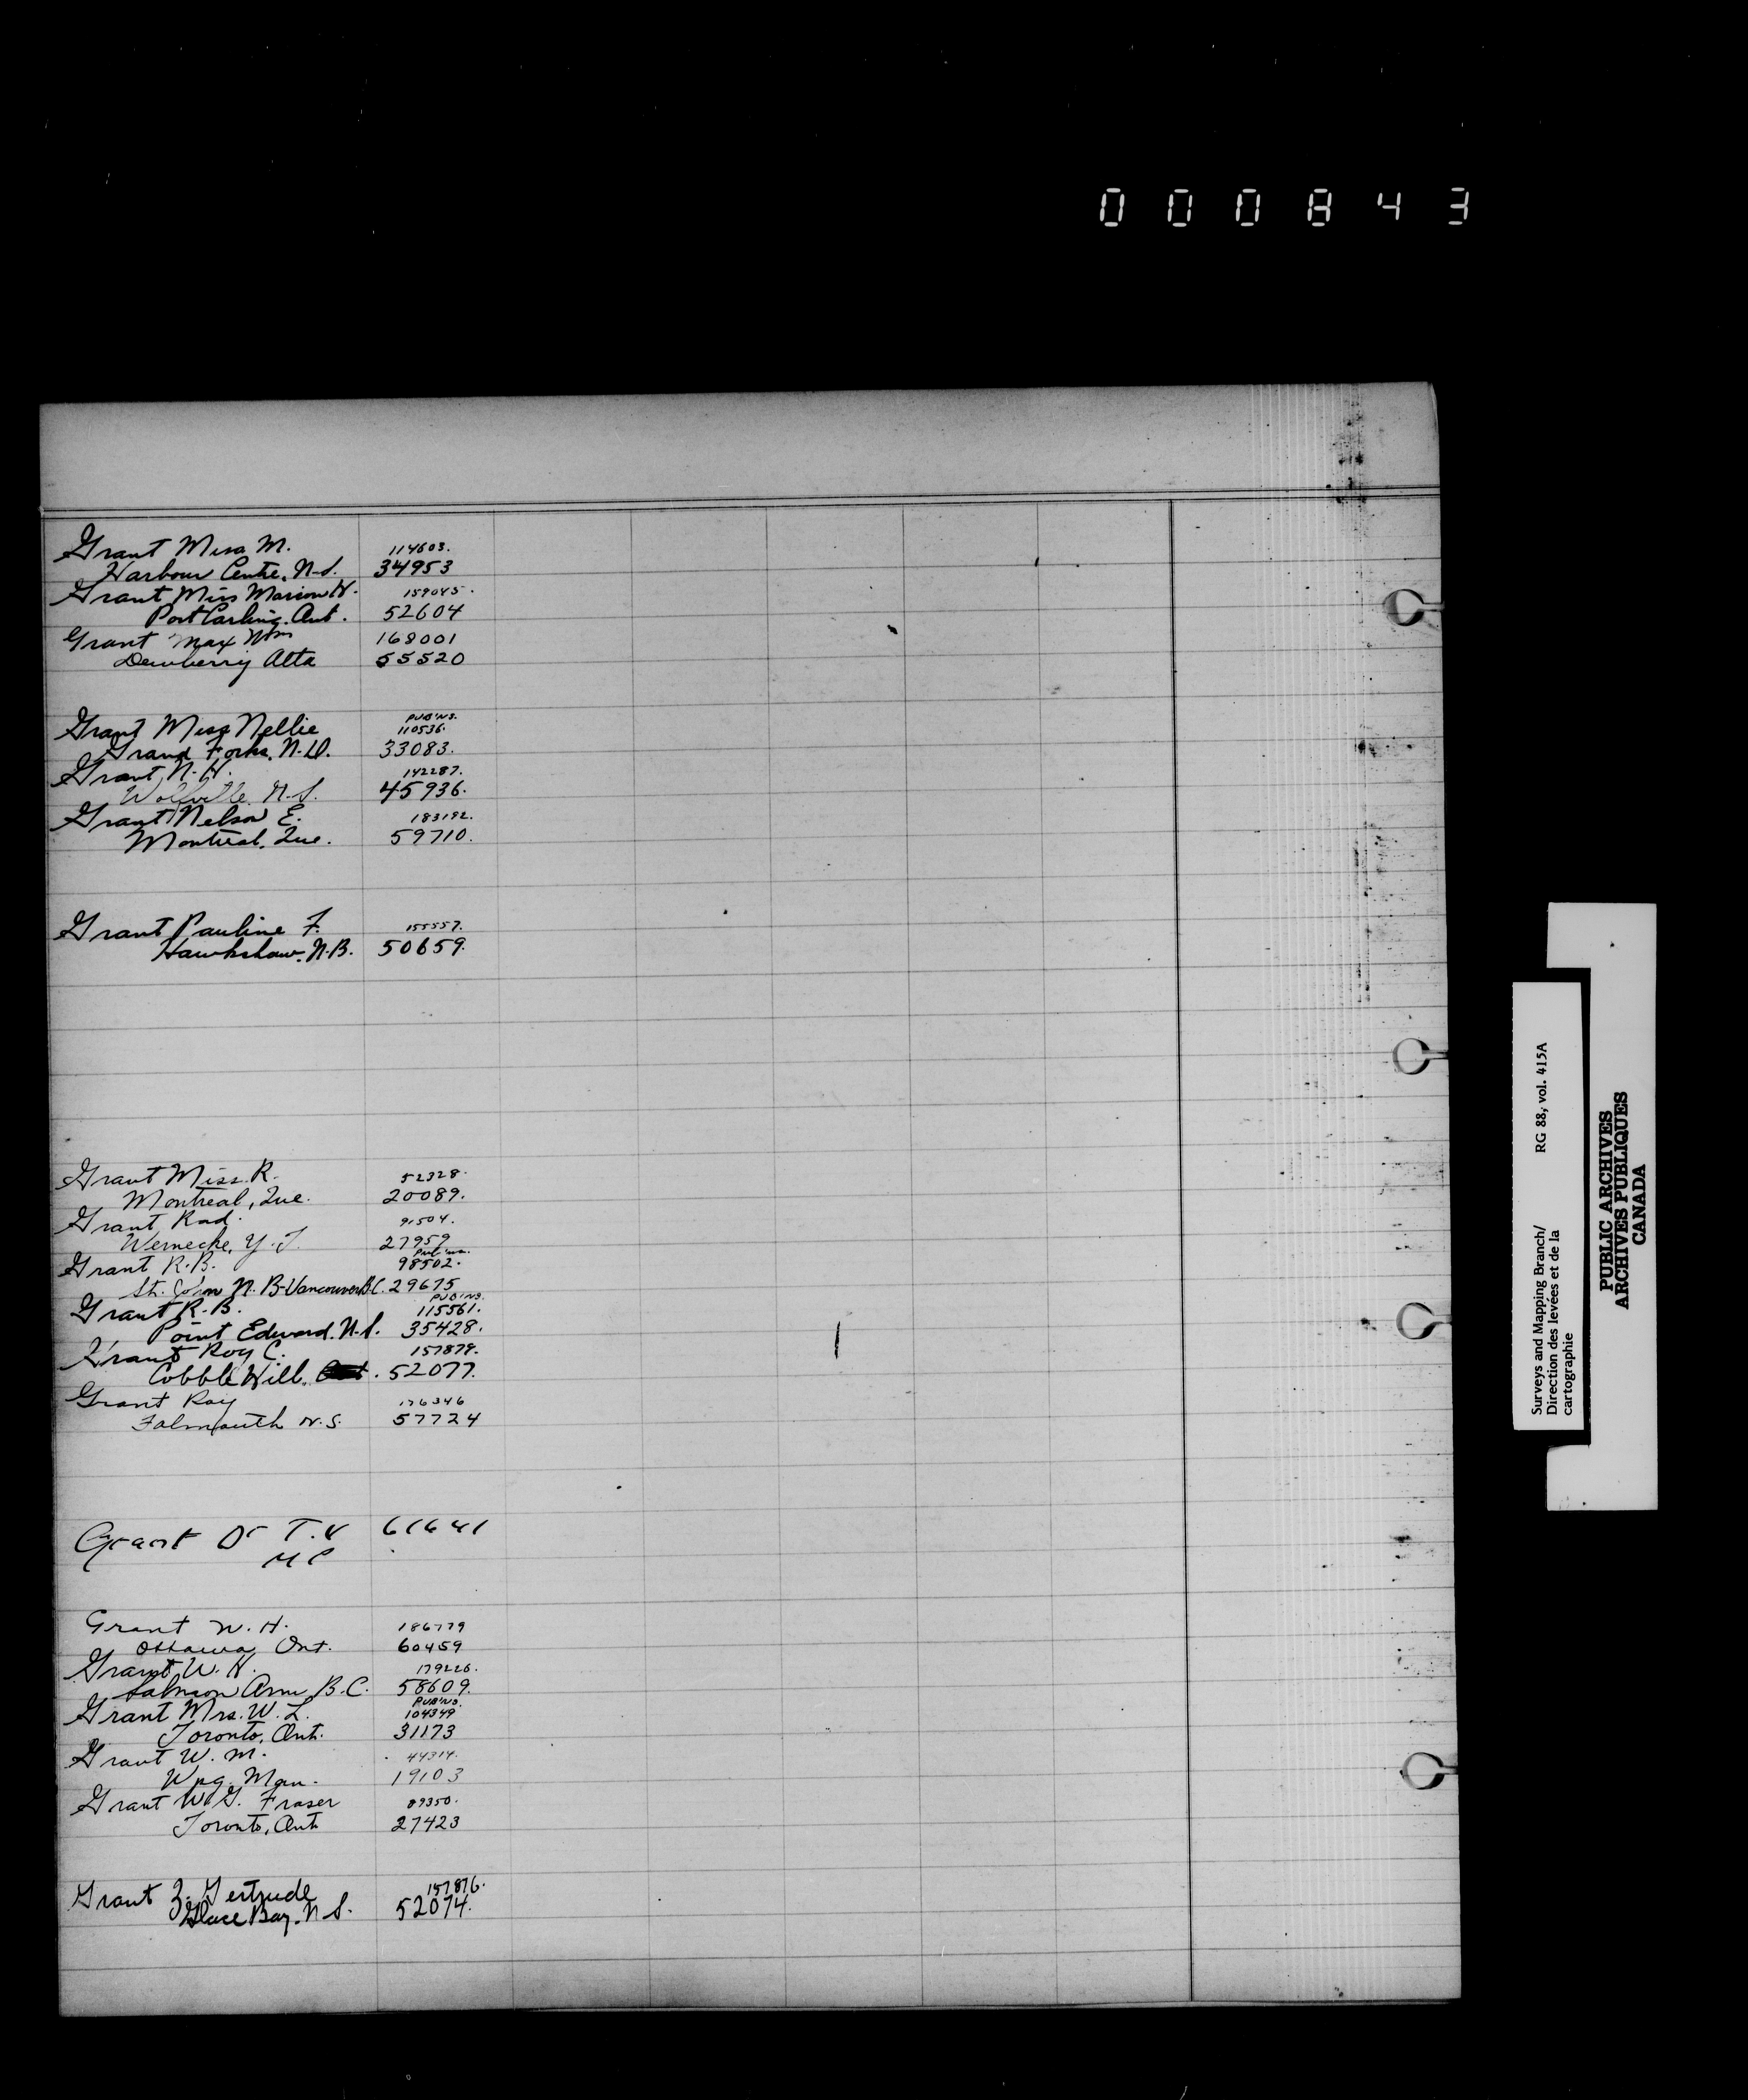 000843
Grant Miss M. 114603.
Harbour Centre, N.S. 34953
Grant Miss Marion H. 159045.
Port Carling, Ont. 52604
Grant Max Wm 168001
Dewberry Alta 55520
PUB'NS.
Grant Miss Nellie 110536.
Grand Forks, N.D. 33083.
Grant N.H. 142287.
Wolfville, N.S. 45936.
Grant Nelson E. 183192.
Montreal, Que. 59710.
Grant Pauline F. 155557.
Hawkshaw, N.B. 50659.
Grant Miss R. 52328.
Montreal, Que. 20089.
Grant Rad. 91504.
Wernecke, Y.T. 27959
Pub'ns.
Grant R.B. 98502.
St. John N.B-Vancouver B.C. 29675
PUB'NS.
Grant R.B. 115561.
Point Edward, N.S. 35428.
Grant Roy C. 157879.
Cobble Hill, 52077.
Grant Roy 176346
Falmouth N.S. 57724
Grant Dr T.V 61641
MP
Grant W.H. 186779
Ottawa, Ont. 60459
Grant W.H. 179226.
Salmon Arm B.C. 58609.
PUB'NS.
Grant Mrs. W.L. 104349
Toronto, Ont. 31173
Grant W.M. 44314.
Wpg. Man. 19103
Grant W.G. Fraser 89350.
Toronto, Ont 27423
Grant Z. Gertrude 157876.
Glace Bay, N.S. 52074.
Surveys and Mapping Branch/ RG 88, vol. 415A
Direction des levées et de la
cartographie
PUBLIC ARCHIVES
ARCHIVES PUBLIQUES
CANADA